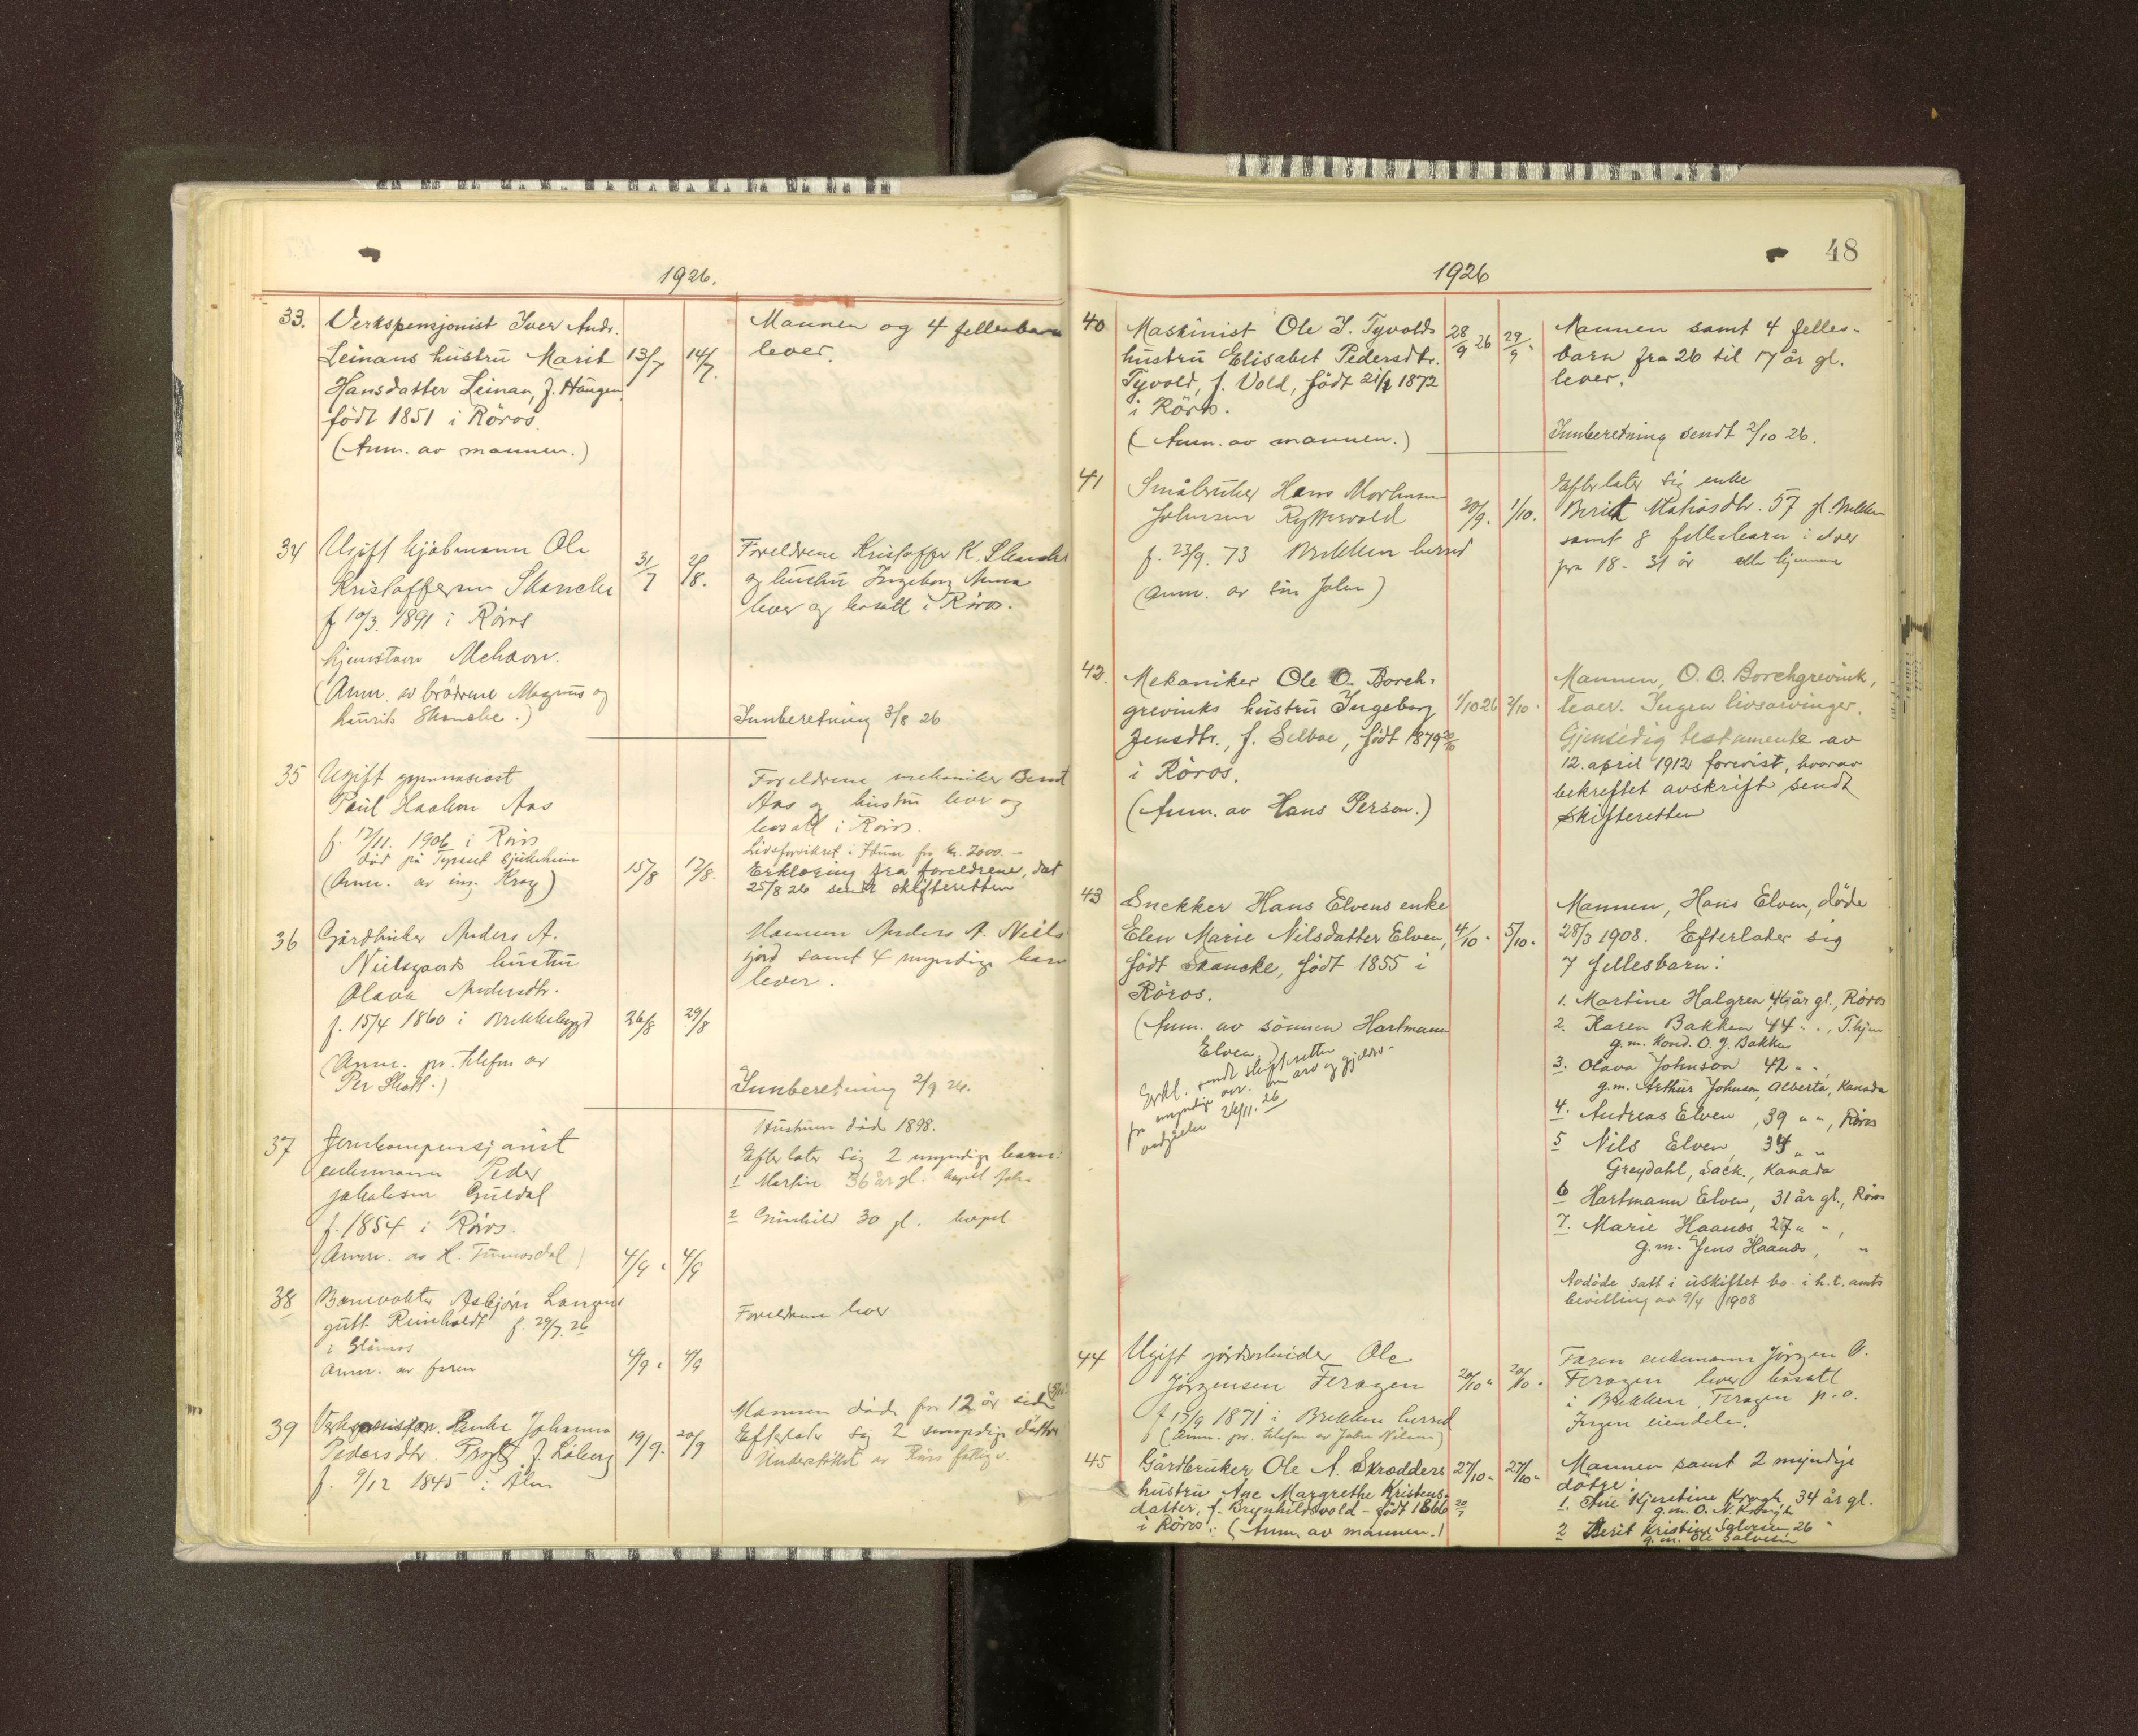 1926.
33.
Verkspensjonist Iver Andr.
Leinans hustru Marit
Hansdatter Leinan, f. Haugen,
født 1851 i Røros.
(Anm. av mannen.)
13/7
14/7.
Mannen og 4 fellesbarn
lever.
34
Ugift kjøbmann Ole
Kristoffersen Skancke
f 10/3. 1891 i Røros
hjemstavn Mehavn.
(Anm. av brødrene Magnus og
Henrik Skancke.)
31/7
2/8.
Foreldrene Kristoffer K. Skancke
og hustru Ingeborg Anna
lever og bosatt i Røros.
Innberetning 3/8 26
35
Ugift gymnasiast
Paul Haakon Aas
f. 17/11. 1906 i Røros
død på Tynset sjukeheim
(Anm. av ing. Krog)
15/8
17/8.
Foreldrene mekaniker Bernt
Aas og hustru lever og
bosatt i Røros.
Livsforsikret i Idun for kr. 2000.-
Erklæring fra foreldrene, dat
25/8 26 sendt skifteretten
36
Gårdbruker Anders A.
Nielsgaards hustru
Olava Andersdtr.
f. 15/4 1860 i Brekkebygd
(Anm. pr. telefon av
Per Skott.)
26/8
29/8
Mannen Anders A. Niels
gård samt 4 myndige barn
lever.
Innberetning 2/9 26.
37
enkemann Peder
Jakobsen Guldal
f. 1854 i Røros.
(Anm. av H. Finnosdal)
4/9 "
4/9
Hustruen død 1898.
Efterlater sig 2 myndige barn:
1 Martin 36 år gl.
2 Gunhild 30 gl.
38
Banevokter Asbjørn Langens
gutt Reinholdt f. 29/7. 26
i Glåmos
Anm. av faren
4/9 "
4/9
Foreldrene lever
39
enke Johanna
Pedersdtr. f.
f. 9/12 1845 i Ålen
19/9.
20/9
Mannen død for 12 år siden
Efterlater sig 2 myndige døttre
Understøttet av Røros fattigv.
48
1926
40
Maskinist Ole J. Tyvolds
hustru Elisabet Pedersdtr.
Tyvold, f. Vold, født 21/1 1872
i Røros.
(Anm. av mannen.)
28/9 26
29/9 "
Mannen samt 4 felles-
barn fra 26 til 17 år gl.
lever.
Innberetning sendt 2/10 26.
41
Småbruker Hans Mortinsen
Johnsen Ryttervold
f. 23/9. 73 Brekken herred
(Anm. av sin John)
30/9.
1/10.
Efterlater sig enke
Berit Matiasdtr. 57 gl. Brekken
samt 8 fellesbarn i alder
fra 18 - 31 år alle hjemme
42.
Mekaniker Ole O. Borch-
grevinks hustru Ingeborg
Jensdtr., f. Selboe, født 1879 20/10
i Røros.
(Anm. av Hans Person.)
1/10 26
2/10 "
Mannen, O. O. Borchgrevink,
lever. Ingen livsarvinger.
Gjensidig testamente av
12. april 1912 forevist, hvorav
bekreftet avskrift sendt
skifteretten
43
Snekker Hans Elvens enke
Elen Marie Nilsdatter Elven,
født Skancke, født 1855 i
Røros.
(Anm. av sønnen Hartmann
Elven.)
Erkl. sendt skifteretten
fra myndige arv. om arv og gjelds-
vedgåelse 24/11. 26
4/10 "
5/10 "
Mannen, Hans Elven, døde
28/3 1908. Efterlader sig
7 fellesbarn:
1. Martine Halgren, 46 år gl., Røros
2. Karen Bakken 44 " ", T.hjem
g.m. Kond. O. J. Bakken
3. Olava Johnson 42 " "
g.m. Arthur Johnson, Alberta, Kanada
4. Andreas Elven, 39 " ", Røros
5 Nils Elven, 34 " "
Greydahl, Sack., Kanada
6 Hartmann Elven, 31 år gl., Røros
7. Marie Haanæs, 27 " ",
g.m. Jens Haanæs, "
Avdøde satt i uskiftet bo i h.t. amts
bevilling av 9/4 1908
44
Ugift gårdsarbeider Ole
Jørgensen Feragen
f 17/9 1871 i Brekken herred
(Anm. pr. telefon av John Nilsen)
20/10 "
20/10 "
Faren enkemann Jørgen O.
Feragen lever bosatt
i Brekken, Feragen p.o.
Ingen eiendele.
45
Gårdbruker Ole A. Skrødders
hustru Ane Margrethe Kristens-
datter, f. Brynhildsvold - født 1866 20/7
i Røros. (Anm. av mannen.)
27/10 "
27/10 "
Mannen samt 2 myndige
døtre:
1. Ane Kjerstine Krogh, 34 år gl.
g.m. O. N. Krogh
2 Berit Kristine Salvesen, 26 "
g.m. Ole Salvesen